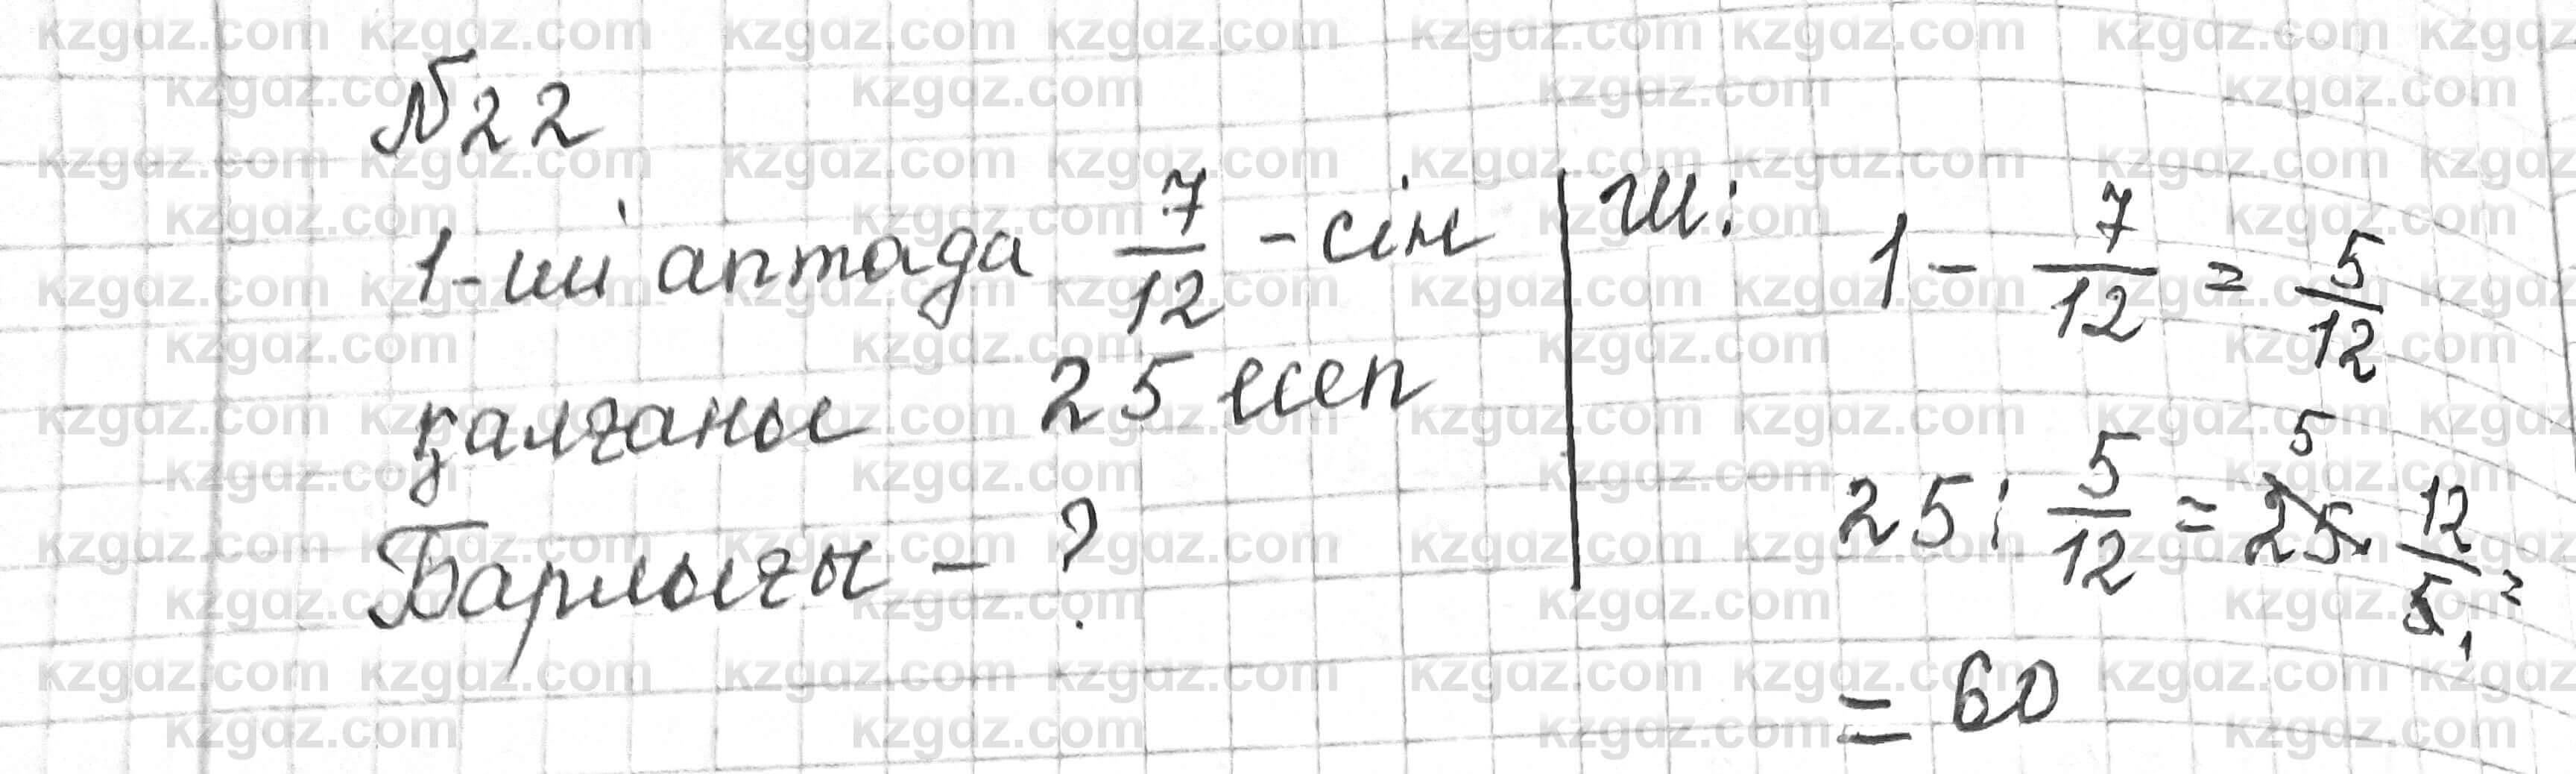 №22
1-ші аптада 7/12 - сін
қалғаны 25 есеп
Барлығы - ?
Ш: 1 - 7/12 = 5/12
25 : 5/12 = 25 · 12/5 =
= 60
kzgdz.com